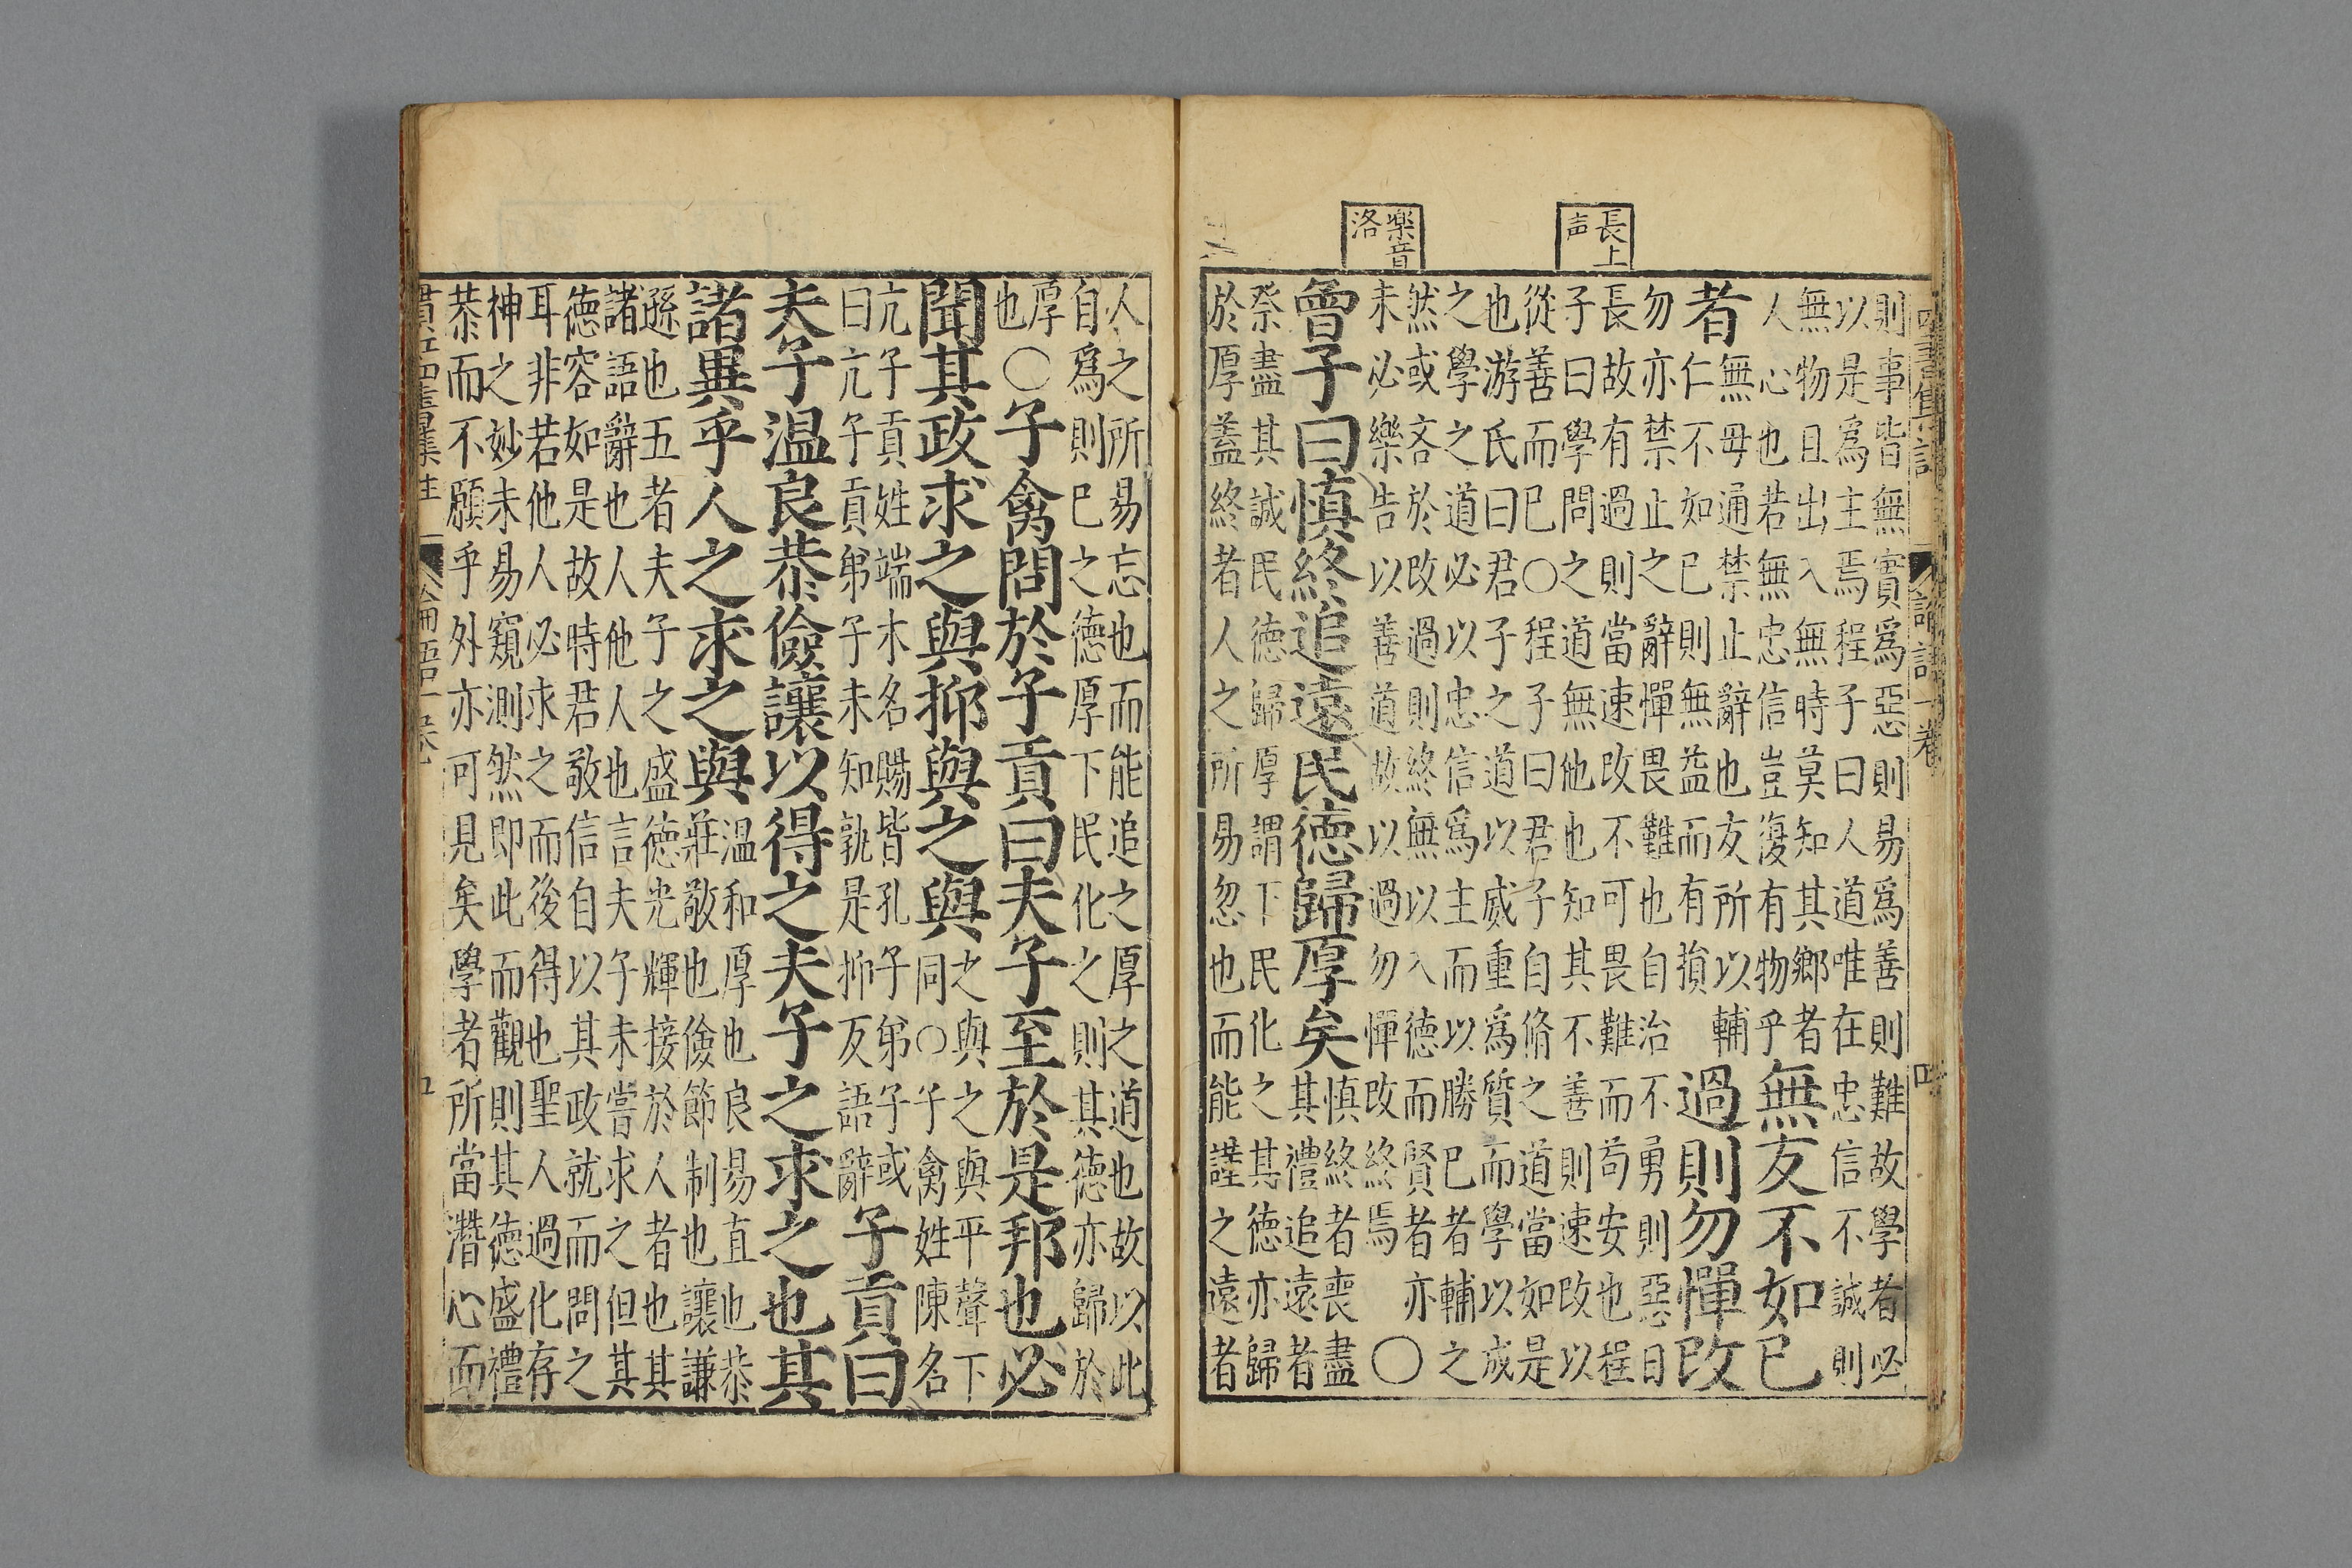 長上
声
楽音
洛
則事皆無實爲惡則易爲善則難故學者必
以是爲主焉程子曰人道唯在忠信不誠則
無物且出入無時莫知其鄉者
人心也若無忠信豈復有物乎
無友不如已
者
無毋通禁止辭也友所以輔
仁不如已則無益而有損
過則勿憚改
勿亦禁止之辭憚畏難也自治不勇則惡日
長故有過則當速改不可畏難而苟安也程
子曰學問之道無他也知其不善則速改以
從善而已○程子曰君子自脩之道當如是
也游氏曰君子之道以威重爲質而學以成
之學之道必以忠信爲主而以勝已者輔之
然或吝於改過則終無以入德而賢者亦
未必樂告以善道故以過勿憚改終焉
○
曾子曰慎終追遠民德歸厚矣
慎終者喪盡
其禮追遠者
祭盡其誠民德歸厚謂下民化之其德亦歸
於厚蓋終者人之所易忽也而能謹之遠者
人之所易忘也而能追之厚之道也故以此
自爲則已之德厚下民化之則其德亦歸於
厚
也
○子禽問於子貢曰夫子至於是邦也必
聞其政求之與抑與之與
之與之與平聲下
同○子禽姓陳名
亢子貢姓端木名賜皆孔子弟子或
曰亢子貢弟子未知孰是抑反語辭
子貢曰
夫子温良恭儉讓以得之夫子之求之也其
諸異乎人之求之與
温和厚也良易直也恭
莊敬也儉節制也讓謙
遜也五者夫子之盛德光輝接於人者也其
諸語辭也人他人也言夫子未嘗求之但其
德容如是故時君敬信自以其政就而問之
耳非若他人必求之而後得也聖人過化存
神之妙未易窺測然即此而觀則其德盛禮
恭而不願乎外亦可見矣學者所當潛心而